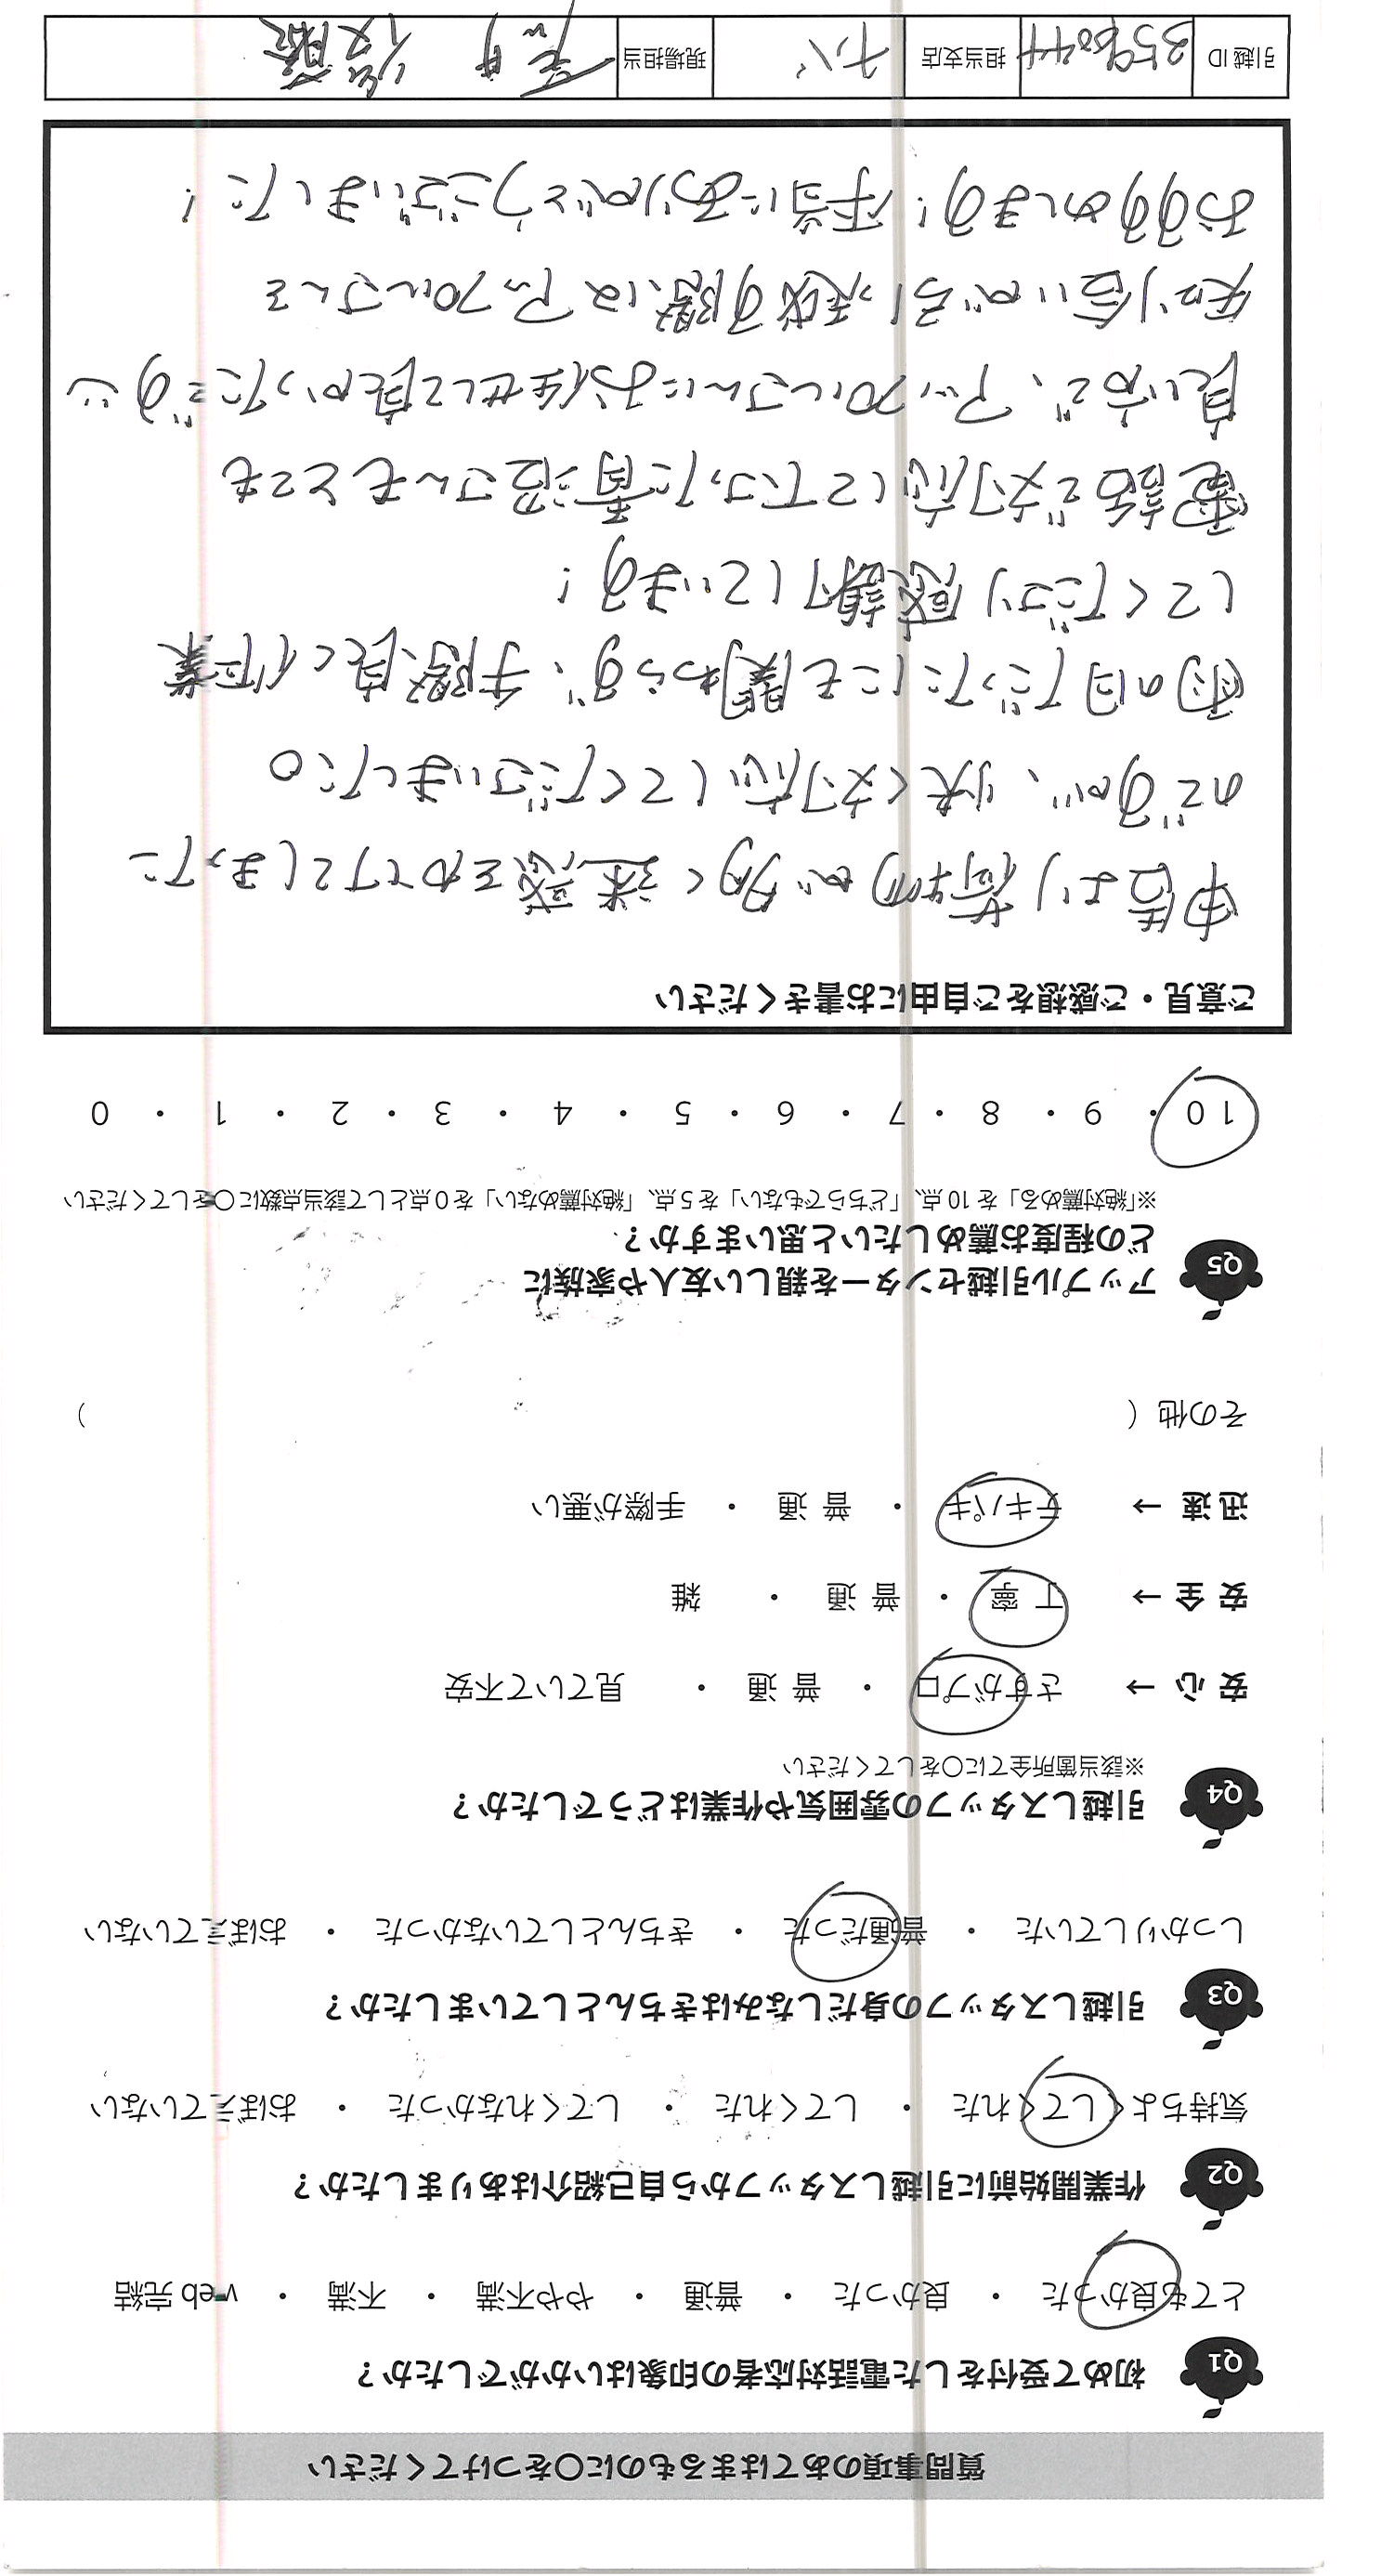 質問事項のあてはまるものに〇をつけてください
Q1 初めて受付をした電話対応者の印象はいかがでしたか？
とても良かった ・ 良かった ・ 普通 ・ やや不満 ・ 不満 ・ web 完結
Q2 作業開始前に引越しスタッフから自己紹介はありましたか？
気持ちよくしてくれた ・ してくれた ・ してくれなかった ・ おぼえていない
Q3 引越しスタッフの身だしなみはきちんとしていましたか？
しっかりしていた ・ 普通だった ・ きちんとしていなかった ・ おぼえていない
Q4 引越しスタッフの雰囲気や作業はどうでしたか？
※該当箇所全てに〇をしてください
安 心 → さすがプロ ・ 普 通 ・ 見ていて不安
安 全 → 丁 寧 ・ 普 通 ・ 雑
迅 速 → テキパキ ・ 普 通 ・ 手際が悪い
その他（ ）
Q5 アップル引越センターを親しい友人や家族に
どの程度お薦めしたいと思いますか？
※「絶対薦める」を 10 点、「どちらでもない」を 5 点、「絶対薦めない」を 0 点として該当点数に〇をしてください
10 ・ 9 ・ 8 ・ 7 ・ 6 ・ 5 ・ 4 ・ 3 ・ 2 ・ 1 ・ 0
ご意見・ご感想をご自由にお書きください
申告より荷物が多く迷惑をかけてしまった
のですが、快く対応してくださいました。
雨の日だったにも関わらず、手際良く作業
してくださり感謝しています！
電話で対応して下さった菅沼さんもとても
良い方で、アップルさんにお任せして良かったです
知り合いが引っ越す際はアップルさんを
おすすめします！本当にありがとうございました！
引越 ID 担当支店 チバ 現場担当